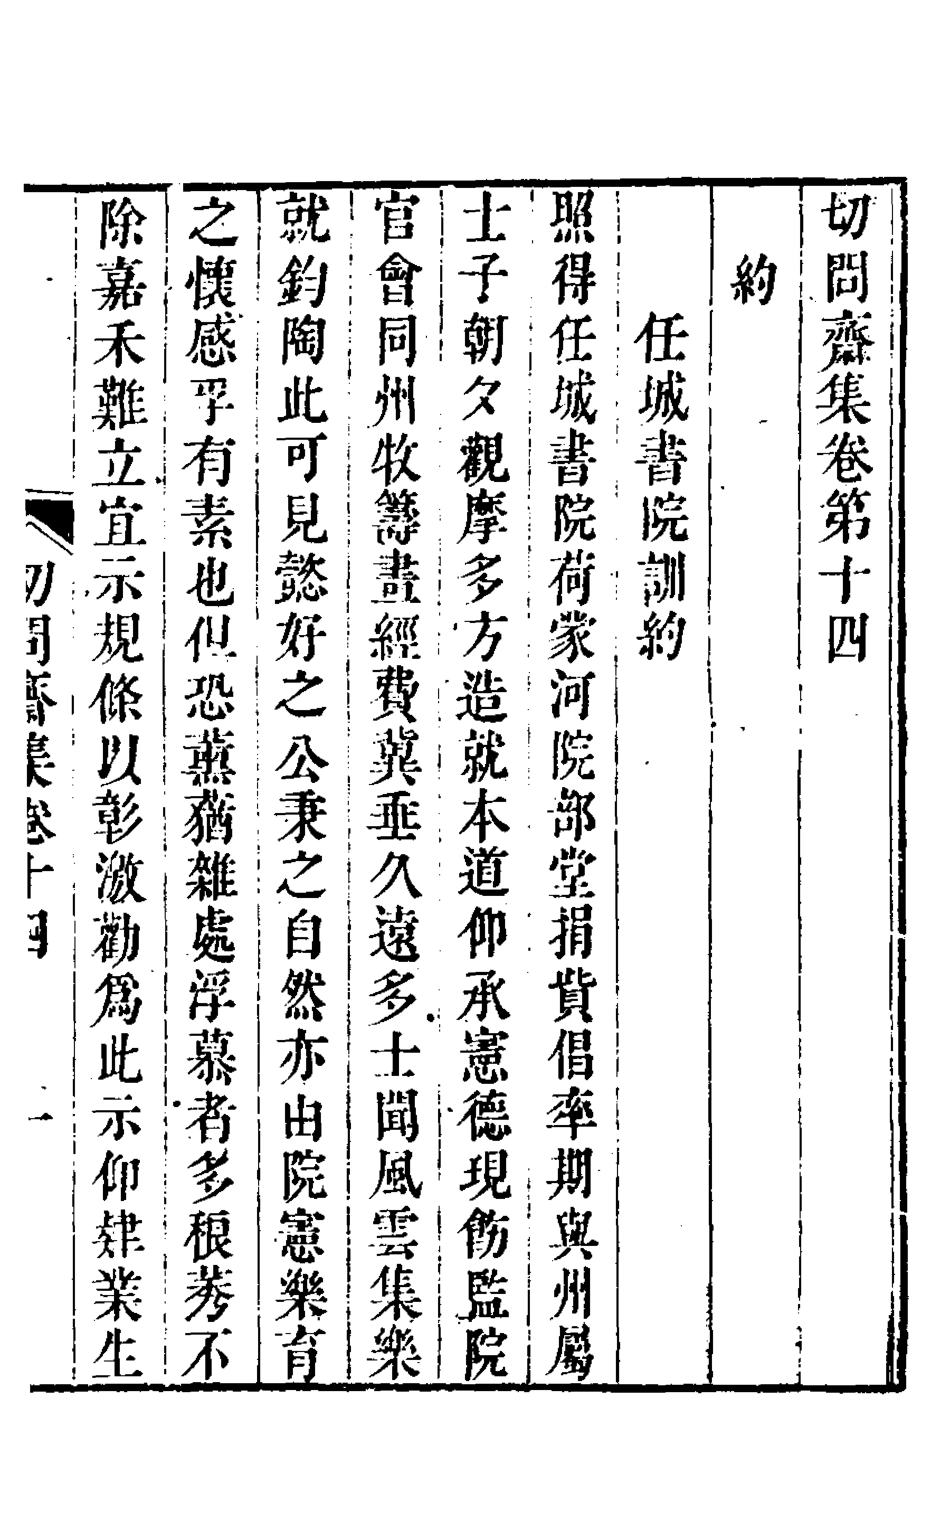 切問齋集卷第十四
約
任城書院訓約
照得任城書院荷蒙河院部堂捐貲倡率期與州屬
士子朝夕觀摩多方造就本道仰承憲德現飭監院
官會同州牧籌畫經費冀垂久遠多士聞風雲集樂
就鈞陶此可見懿好之公秉之自然亦由院憲樂育
之懷感孚有素也但恐薰蕕雜處浮慕者多稂莠不
除嘉禾難立宜示規條以彰激勸爲此示仰肄業生
切問齋集卷十四
一